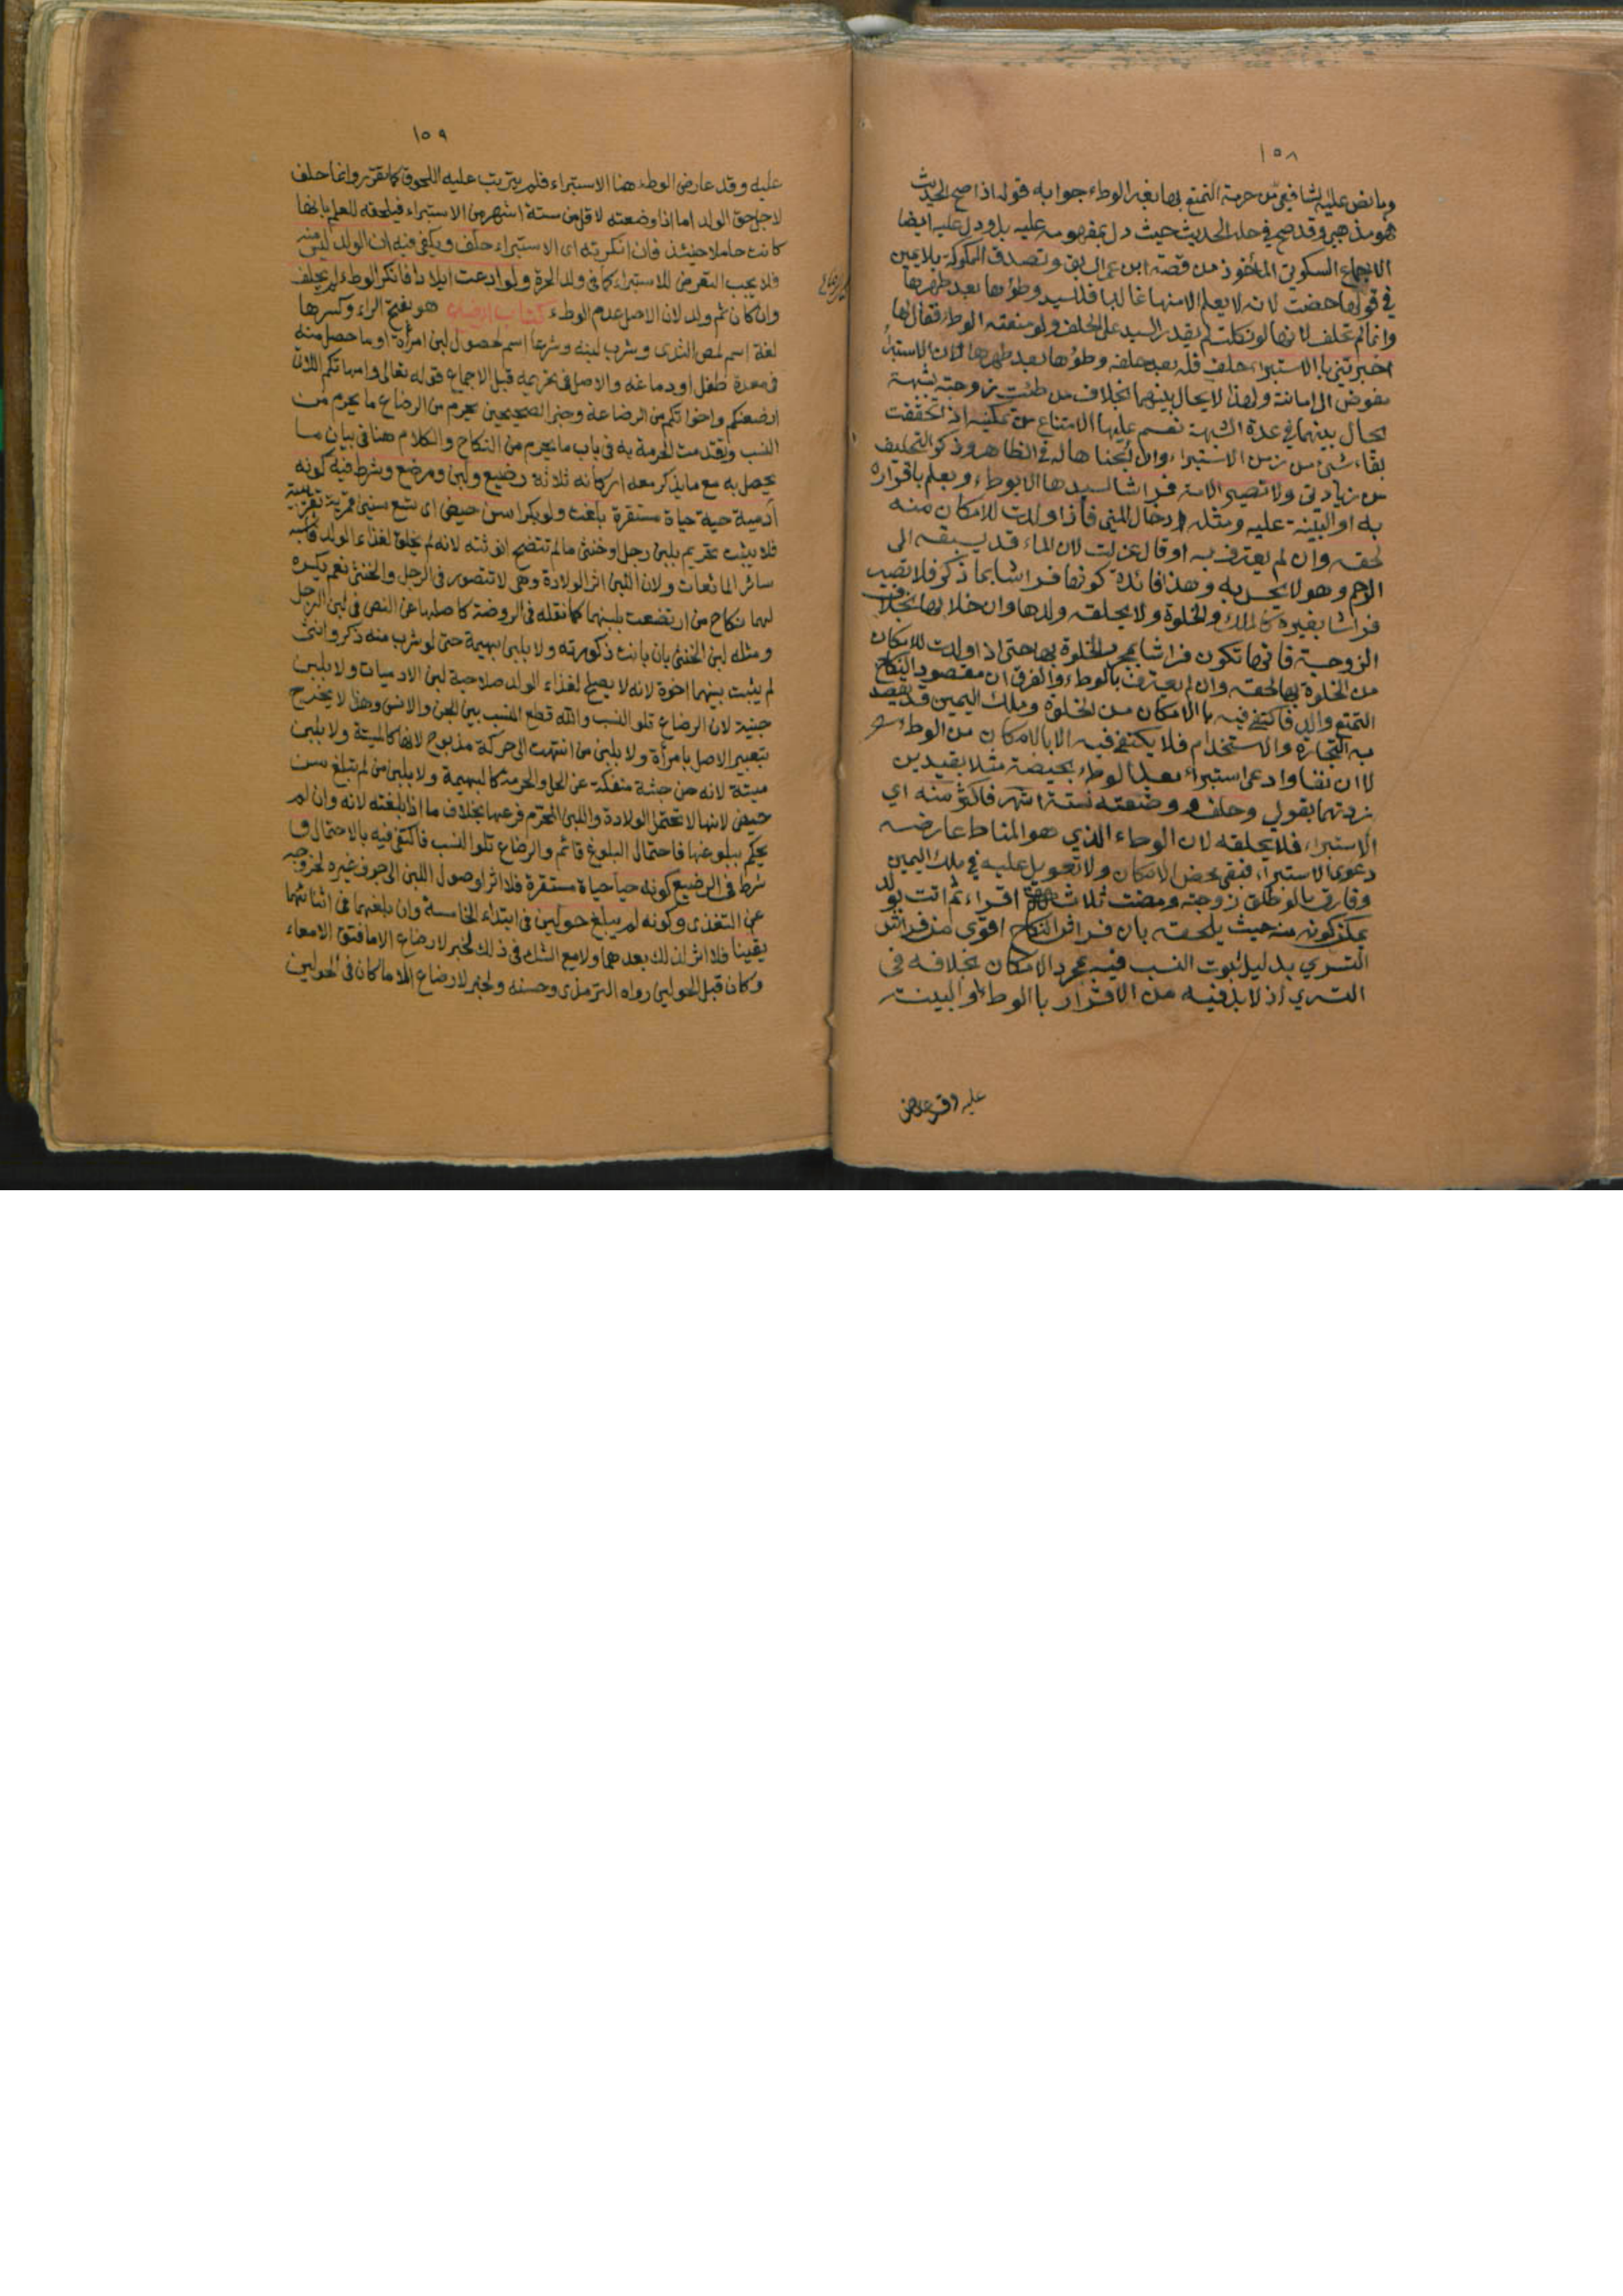 ١٥٨
وما نص عليه الشافعي من حرمة التمتع بها بغير الوطء جوابه قوله اذا صح الحديث
فهو مذهبي وقد صح في حله الحديث حيث دل بمفهومه عليه بل ودل عليه ايضا
الاجماع السكوتي المأخوذ من قصة ابن عمر السابق وتصدق المملوكة بلا يمين
في قولها حضت لانه لا يعلم الا منها غالبا فللسيد وطؤها بعد طهرها
وانما لم تحلف لانها لو نكلت لم يقدر السيد على الحلف ولو منعته الوطء فقال لها
اخبرتني بالاستبراء حلف فله بعد حلفه وطؤها بعد طهرها لان الاستبراء
مفوض الى امانته ولهذا لا يحال بينهما بخلاف من طئت زوجته بشبهة
يحال بينهما في عدة الشبهة نعم عليها الامتناع من تمكينه اذا تحققت
بقاء شئ من زمن الاستبراء وان ابحنا هاله في الظاهر وذكر التحليف
من زيادتي ولا تصير الامة فراشا لسيدها الا بوطء ويعلم باقراره
به او البينة عليه ومثله ادخال المني فاذا ولدت للامكان منه
لحقه وان لم يعترف به او قال عزلت لان الماء قد يسبقه الى
الرحم وهو لا يحس به وهذا فائدة كونها فراشا بما ذكر فلا تصير
فراشا بغيره كالملك والخلوة ولا يلحقه ولدها وان خلا بها بخلاف
الزوجة فانها تكون فراشا بمجرد الخلوة بها حتى اذا ولدت للامكان
من الخلوة بها لحقه وان لم يعترف بالوطء والفرق ان مقصود النكاح
التمتع والولد فاكتفى فيه بالامكان من الخلوة وملك اليمين قد يقصد
به التجارة والاستخدام فلا يكتفى فيه الا بالامكان من الوطء
لا ان نفا وادعى استبراء بعد الوطء بحيضة مثلا بقيدين
زدتهما بقولي وحلف ووضعته لستة اشهر فاكثر منه اي
الاستبراء فلا يلحقه لان الوطء الذي هو المناط عارضه
دعوى الاستبراء فبقى محض الامكان ولا تعويل عليه في ملك اليمين
وفارق ما لو طلق زوجته ومضت ثلاثة اقراء ثم اتت بولد
يمكن كونه منه حيث يلحقه بان فراش النكاح اقوى من فراش
التسري بدليل ثبوت النسب فيه بمجرد الامكان بخلافه في
التسري اذ لا بد فيه من الاقرار بالوطء او البينة
عليه وقد عارض
١٥٩
عليه وقد عارض الوطء هنا الاستبراء فلم يترتب عليه اللحوق كما تقرر وانما حلف
لاجل حق الولد اما اذا وضعته لاقل من ستة اشهر من الاستبراء فيلحقه للعلم بانها
كانت حاملا حينئذ فان انكرته اى الاستبراء حلف ويكفي فيه ان الولد ليس منه
فلا يجب التعرض للاستبراء كما فى ولد الحرة ولو ادعت ايلادا فانكر الوطء لم يحلف
وان كان ثم ولد لان الاصل عدم الوطء كتاب الرضاع هو بفتح الراء وكسرها
لغة اسم لمص الثدى وشرب لبنه وشرعا اسم لحصول لبن امرأة او ما حصل منه
فى معدة طفل او دماغه والاصل فى تحريمه قبل الاجماع قوله تعالى وامهاتكم اللاتى
ارضعنكم واخواتكم من الرضاعة وخبر الصحيحين يحرم من الرضاع ما يحرم من
النسب وتقدمت الحرمة به فى باب ما يحرم من النكاح والكلام هنا فى بيان ما
يحصل به مع ما يذكر معه اركانه ثلاثة رضيع ولبن ومرضع وشرط فيه كونه
آدمية حية حياة مستقرة بلغت ولو بكرا سن حيض اى تسع سنين قمرية تقريبية
فلا يثبت تحريم بلبن رجل او خنثى ما لم تتضح انوثته لانه لم يخلق لغذاء الولد فاشبه
سائر المائعات ولان اللبن اثر الولادة وهى لا تتصور فى الرجل والخنثى نعم يكره
لهما نكاح من ارتضعت بلبنهما كما نقله فى الروضة كاصلها عن النص فى لبن الرجل
ومثله لبن الخنثى بان بانت ذكورته ولا بلبن بهيمة حتى لو شرب منه ذكر وانثى
لم يثبت بينهما اخوة لانه لا يصلح لغذاء الولد صلاحية لبن الادميات ولا بلبن
جنية لان الرضاع تلو النسب والله قطع النسب بين الجن والانس وهذا لا يخرج
بتعبير الاصل بامرأة ولا بلبن من انتهت الى حركة مذبوح لانها كالميتة ولا بلبن
ميتة لانه من جثة منفكة عن الحل والحرمة كالبهيمة ولا بلبن من لم تبلغ سن
حيض لانها لا تحتمل الولادة واللبن المحرم فرعها بخلاف ما اذا بلغته لانه وان لم
يحكم ببلوغها فاحتمال البلوغ قائم والرضاع تلو النسب فاكتفى فيه بالاحتمال و
شرط فى الرضيع كونه حيا حياة مستقرة فلا اثر لوصول اللبن الى جوف غيره لخروجه
عن التغذى وكونه لم يبلغ حولين فى ابتداء الخامسة وان بلغهما فى اثنائها
يقينا فلا اثر لذلك بعدهما ولا مع الشك فى ذلك لخبر لا رضاع الا ما فتق الامعاء
وكان قبل الحولين رواه الترمذى وحسنه ولخبر لا رضاع الا ما كان فى الحولين